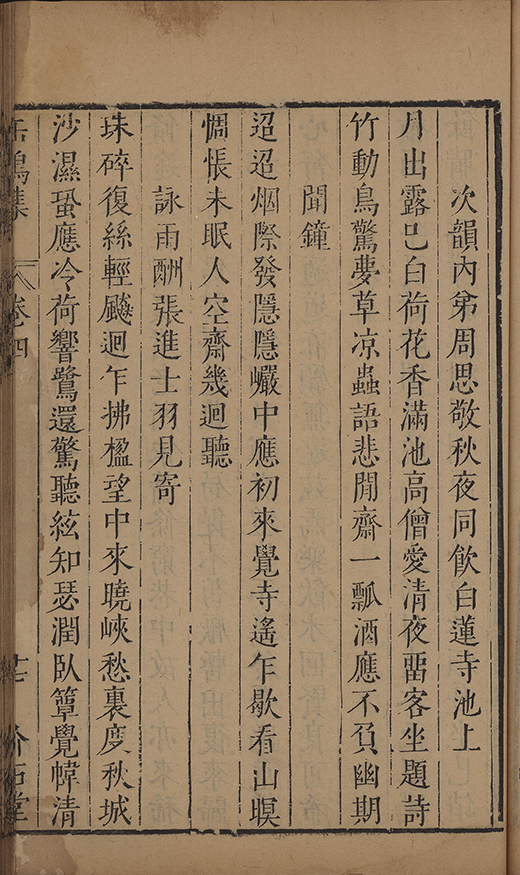 次韻內弟周思敬秋夜同飲白蓮寺池上
月出露已白荷花香滿池高僧愛清夜畱客坐題詩
竹動鳥驚夢草凉蟲語悲閒齋一瓢酒應不負幽期
聞鐘
迢迢烟際發隱隱巘中應初來覺寺遙乍歇看山暝
惆悵未眠人空齋幾迴聽
詠雨酬張進士羽見寄
珠碎復絲輕颸迴乍拂楹望中來曉峽愁裏度秋城
沙濕蛩應冷荷響鷺還驚聽絃知瑟潤臥簟覺幃清
缶鳴集 卷四 十二